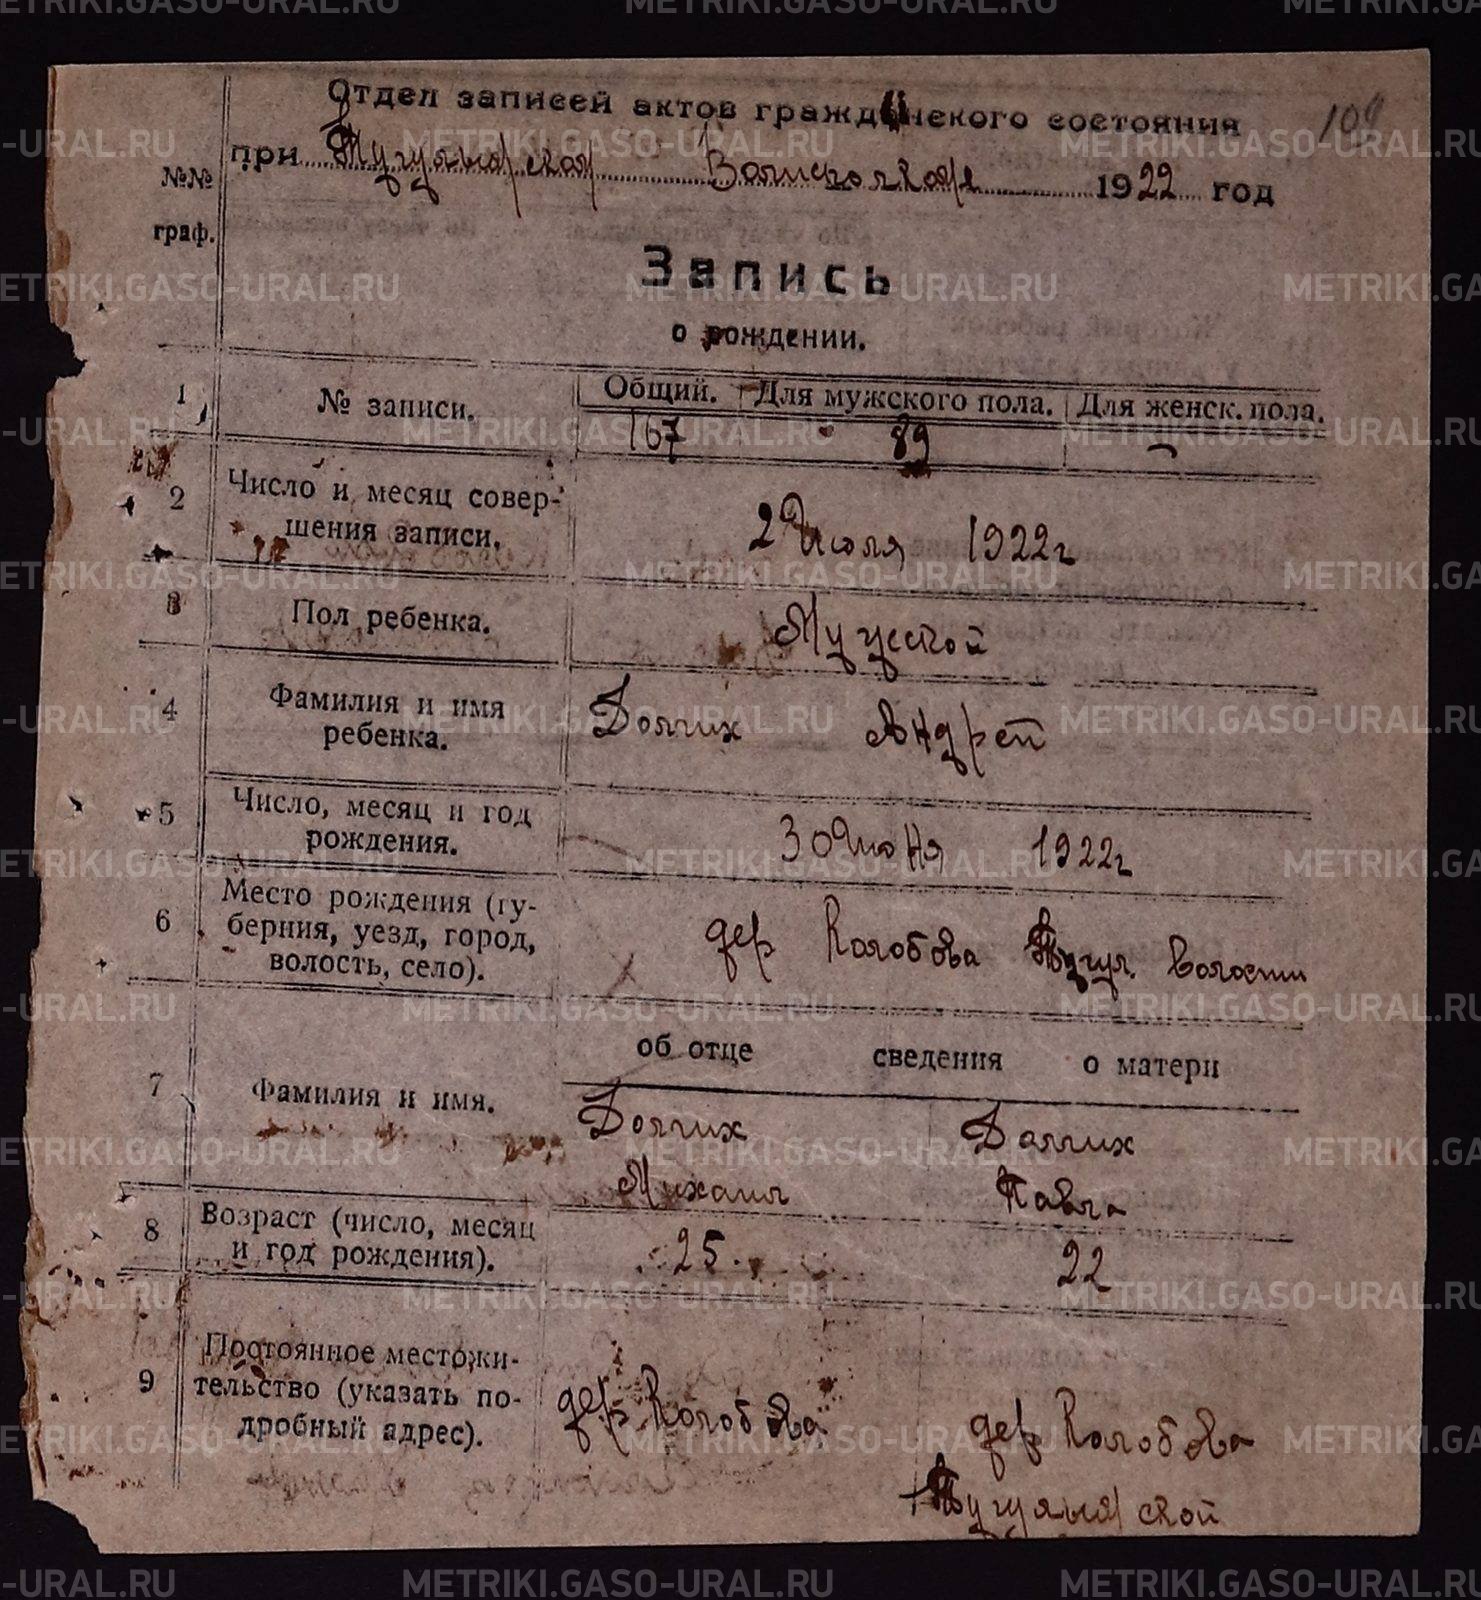 109
Отдел записей актов гражданского состояния
при Тугулымской Волисполкоме 1922 год
№№ граф.
Запись
о рождении.
1 № записи. Общий. Для мужского пола. Для женск. пола.
167 89 —
2 Число и месяц совер-
шения записи.
2 Июля 1922 г
3 Пол ребенка. Мужской
4 Фамилия и имя
ребенка.
Долгих Андрей
5 Число, месяц и год
рождения.
30 Июня 1922 г
6 Место рождения (гу-
берния, уезд, город,
волость, село).
дер Колобова Тугул. волости
об отце сведения о матери
7 Фамилия и имя.
Долгих Долгих
Михаил Павла
8 Возраст (число, месяц
и год рождения).
25. 22
9 Постоянное местожи-
тельство (указать по-
дробный адрес).
дер Колобова дер Колобова
Тугулымской
METRIKI.GASO-URAL.RU